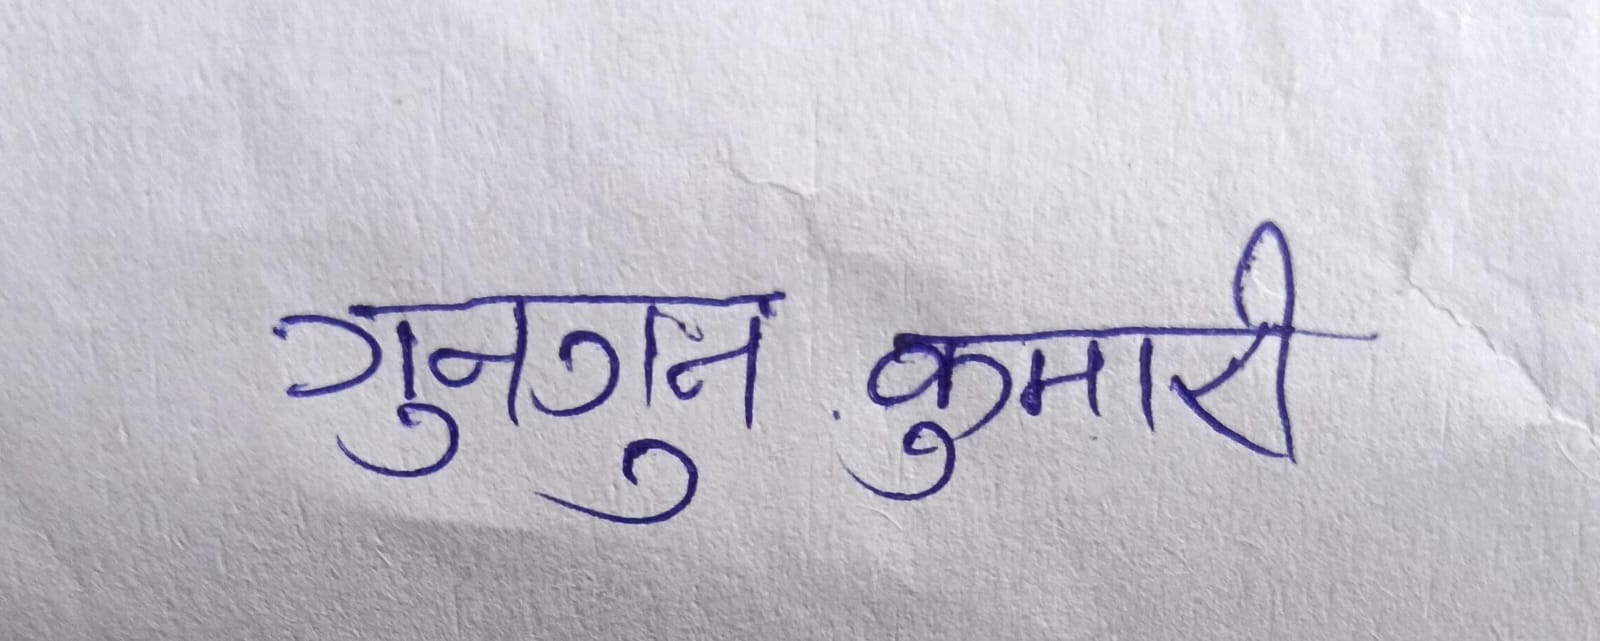 गुनगुन कुमारी